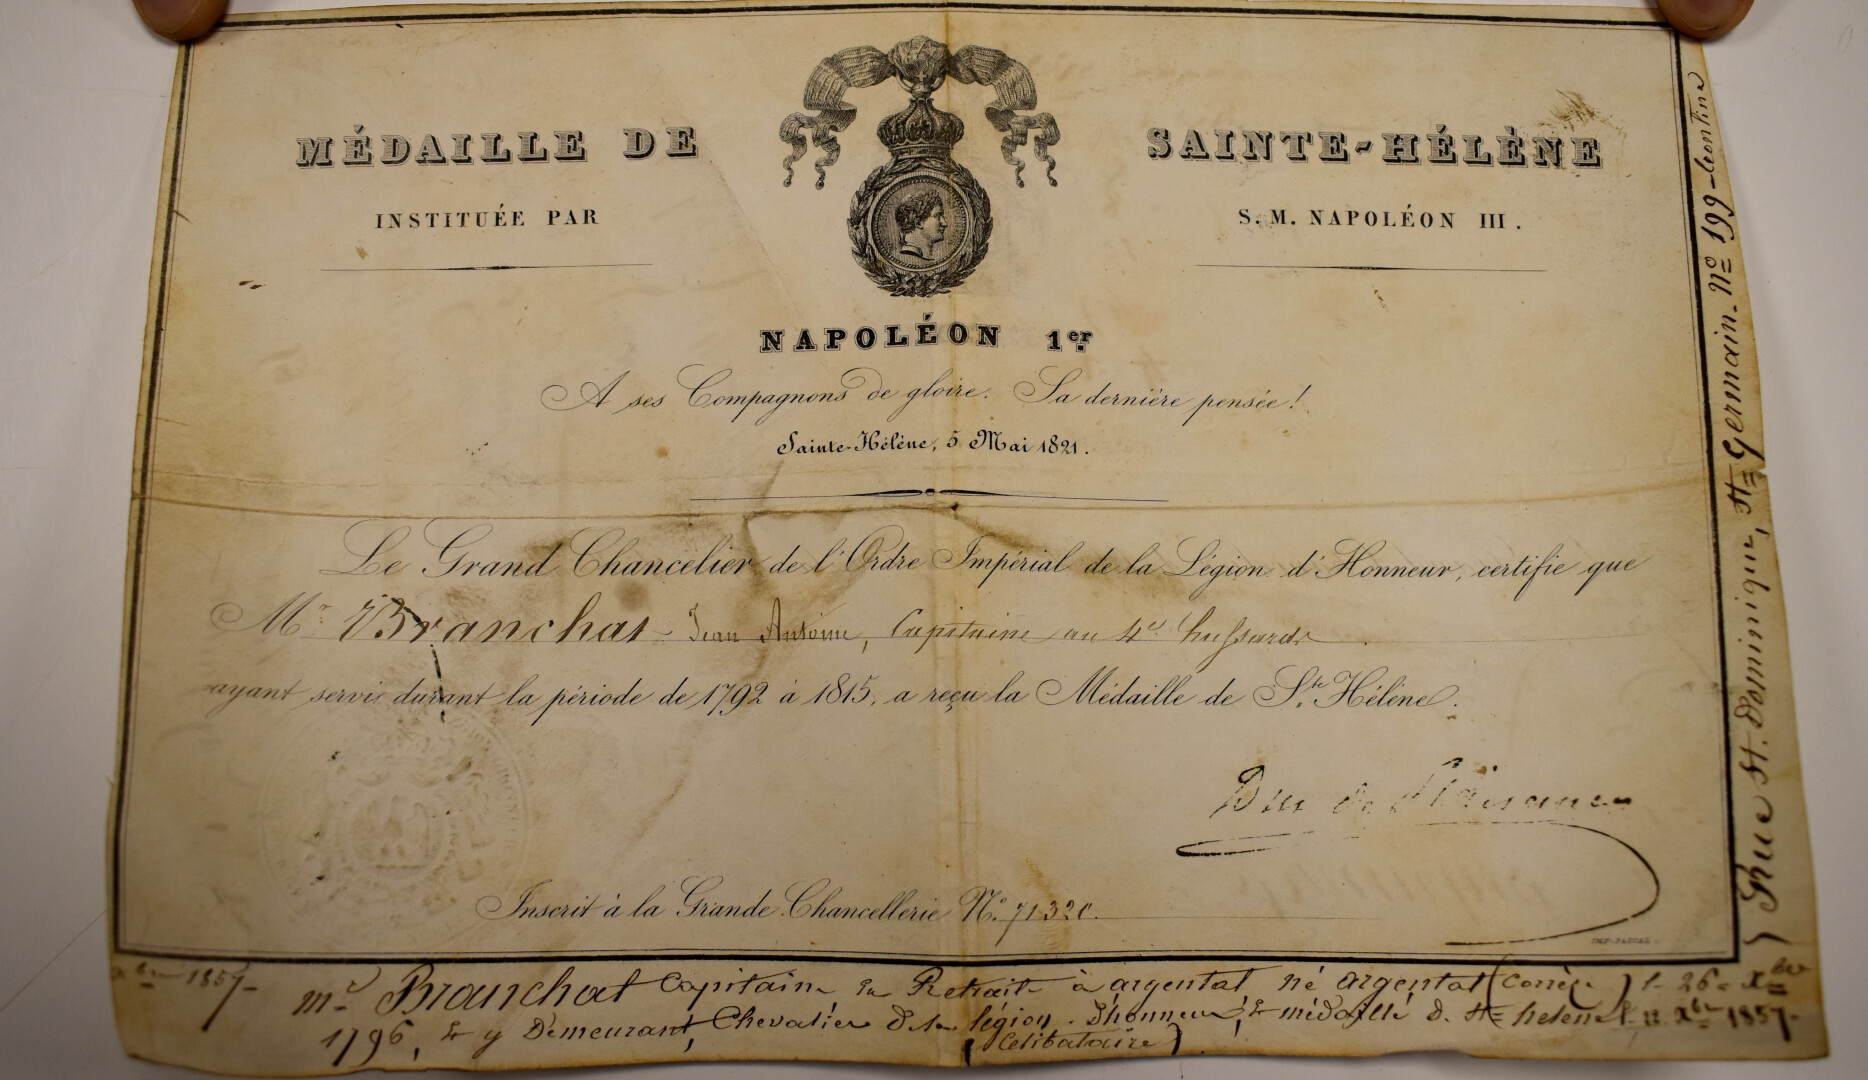 MÉDAILLE DE SAINTE-HÉLÈNE
INSTITUÉE PAR S. M. NAPOLÉON III.
NAPOLÉON 1er
A ses Compagnons de gloire. Sa dernière pensée!
Sainte-Hélène, 5 Mai 1821.
Le Grand Chancelier de l'Ordre Impérial de la Légion d'Honneur, certifie que
Mr Branchat Jean Antoine, Capitaine au 4e hussards
ayant servi durant la période de 1792 à 1815, a reçu la Médaille de Ste Hélène.
Duc de Plaisance
Inscrit à la Grande Chancellerie No 71320.
IMP. PASCAL
xbre 1857-
mr Branchat Capitaine en Retraite à argentat né argentat (Corrèze) l- 26 - Xbre
1796, & y Demeurant, Chevalier De la légion D'honneur, & médaillé d. Ste helene xbre 1857-
(Celibataire)
Rue St. Dominique, St Germain. no 199 - Leontine